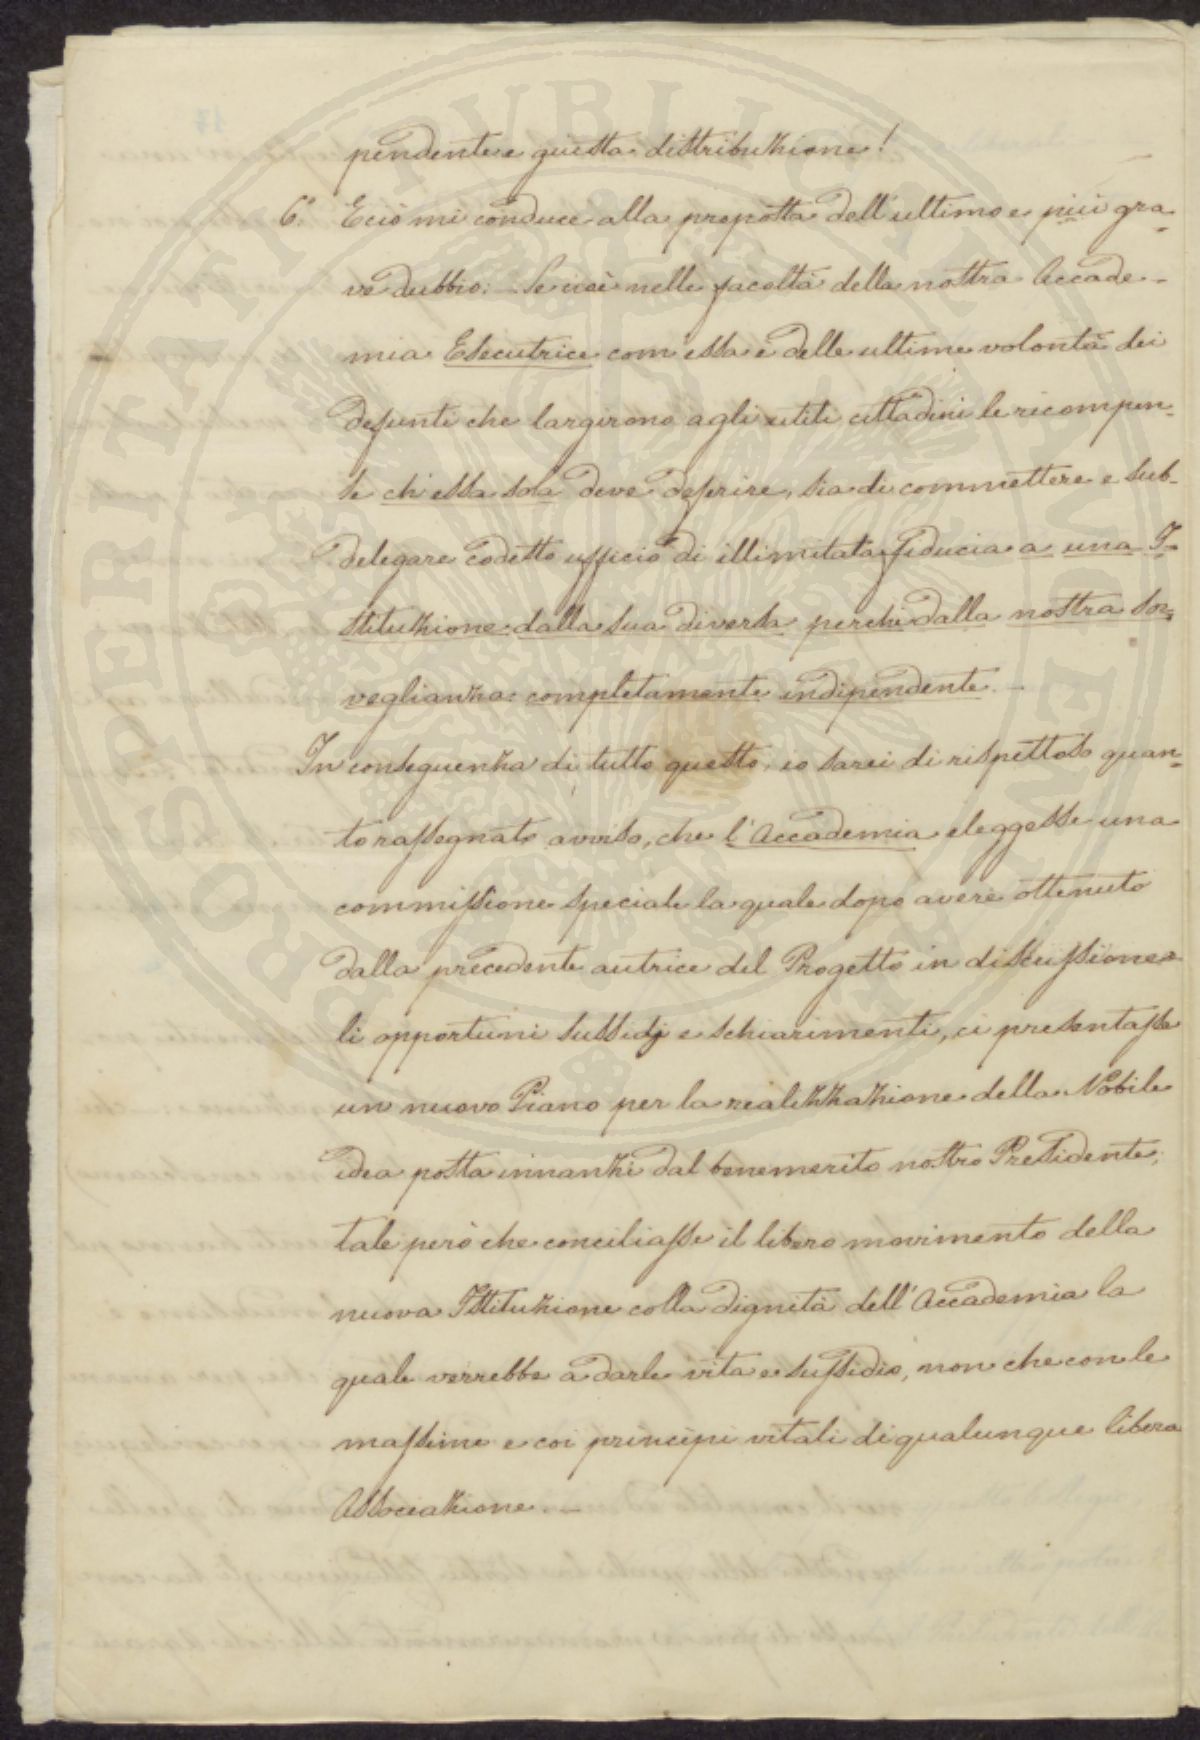 pendente questa distribuzione!
6.° E ciò mi conduce alla proposta dell'ultimo e più gra=
ve dubbio: Se cioè nelle facoltà della nostra Accade-
mia Esecutrice com'essa è delle ultime volontà dei
defunti che largirono agli utili cittadini le ricompen=
se ch'essa sola deve deferire, sia di commettere e sub-
delegare codesto ufficio di illimitata fiducia a una I=
stituzione dalla sua diversa perchè dalla nostra sor=
veglianza completamente indipendente. —
In conseguenza di tutto questo, io sarei di rispettoso quan=
to rassegnato avviso, che l'Accademia eleggesse una
commissione speciale la quale dopo avere ottenuto
dalla precedente autrice del Progetto in discussione
li opportuni sussidj e schiarimenti, ci presentasse
un nuovo Piano per la realizzazione della Nobile
idea posta innanzi dal benemerito nostro Presidente;
tale però che conciliasse il libero movimento della
nuova Istituzione colla dignità dell'Accademia la
quale verrebbe a darle vita e sussidio, non che con le
massime e coi principi vitali di qualunque libera
Associazione. —
PROSPERITATI PUBLICAE AUGENDAE